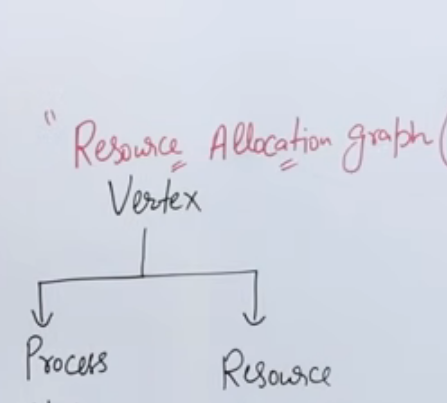 "Resource Allocation graph (
Vertex
Process Resource